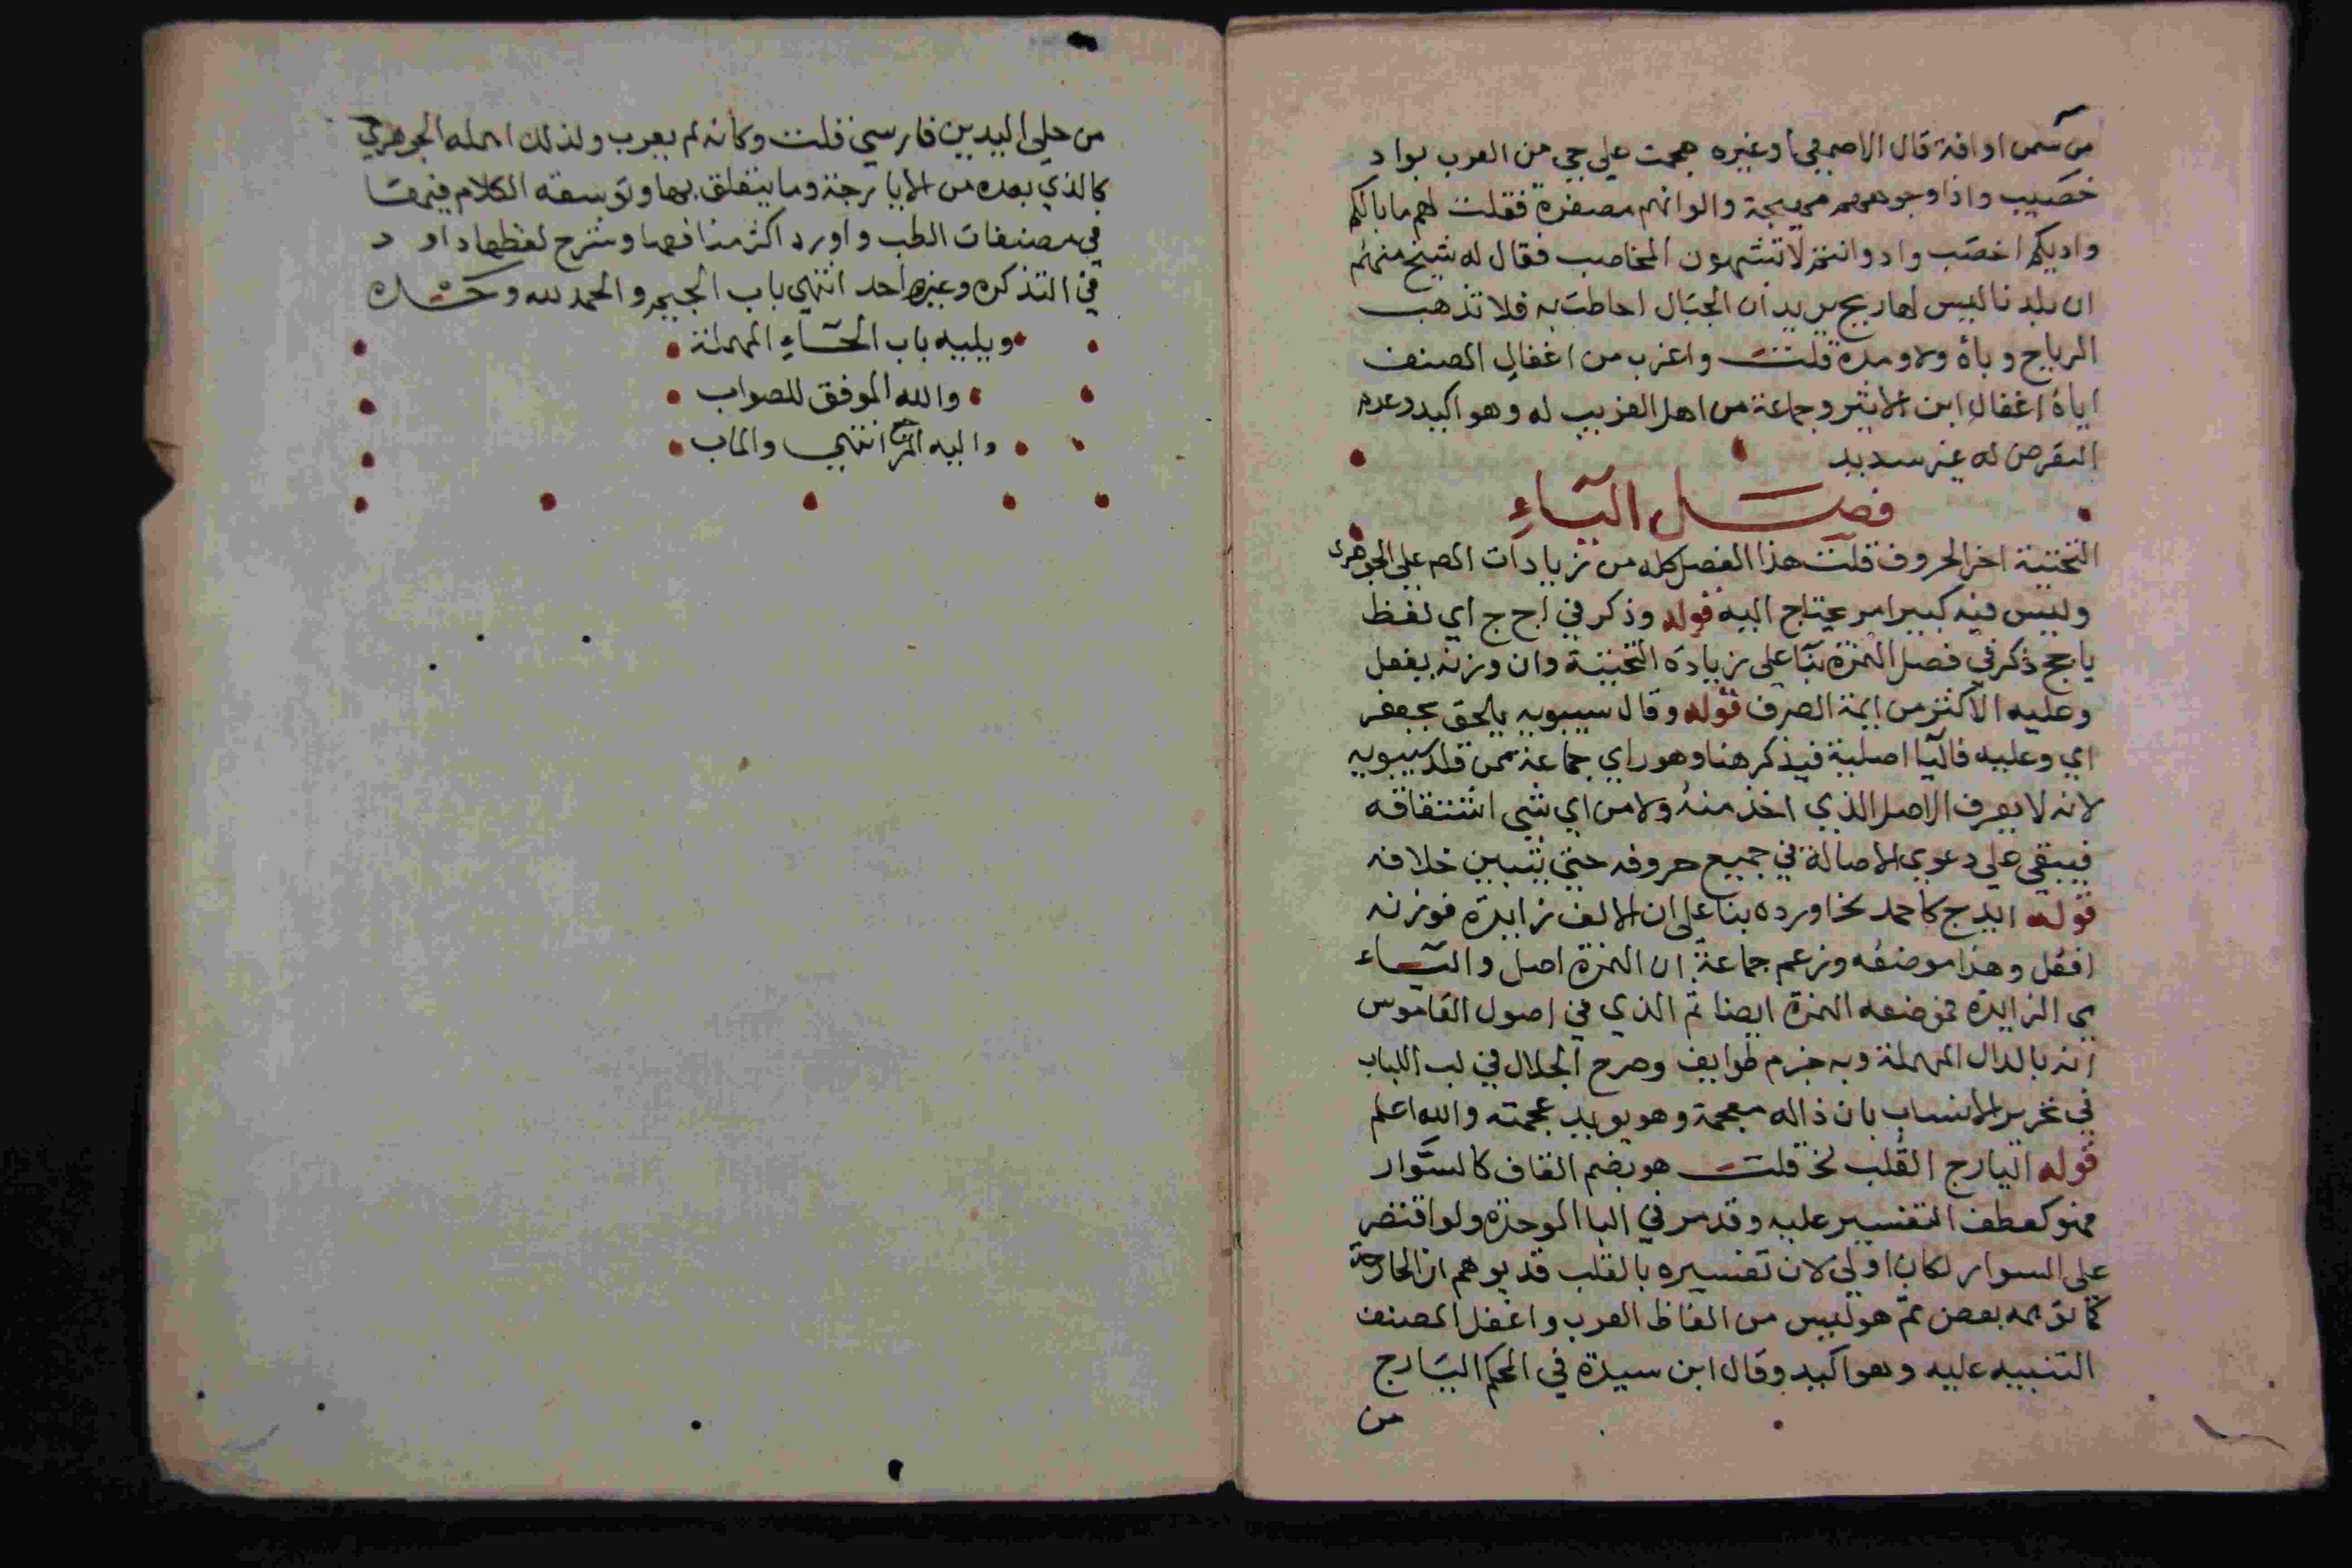 من سمن او افة قال الاصمعي او غيره هجمت علي حي من العرب بواد
خصيب واذا وجوههم مهيجة والوانهم مصفرة فقلت لهم ما بالكم
واديكم اخصب واد وانتم لا تشبهون المخاصب فقال له شيخ منهم
ان بلدنا ليس لها ريح يريد ان الجبال احاطت به فلا تذهب
الرياح وباه ولا ومده قلت واغرب من اغفال المصنف
اياه اغفال ابن الاثير وجماعة من اهل الغريب له وهو اكيد وعدم
التعرض له غير سديد
فصل الياء
التحتية اخر الحروف قلت هذا الفصل كله من زيادات المص علي الجوهري
وليس فيه كبير امر يحتاج اليه قوله وذكر في اج ج اي لفظ
ياجج ذكر في فصل الهمزة بنا علي زيادة التحتية وان وزنه يفعل
وعليه الاكثر من ايمة الصرف قوله وقال سيبويه يلحق بجعفر
اي وعليه فاليا اصلية فيذكر هنا وهو راي جماعة ممن قلد سيبويه
لانه لا يعرف الاصل الذي اخذ منه ولا من اي شي اشتقاقه
فيبقي علي دعوي الاصالة في جميع حروفه حتي يتبين خلافه
قوله ايدج كاحمد الخ اورده بنا علي ان الالف زايدة فوزنه
افعل وهذا موضعه وزعم جماعة ان الهمزة اصل والياء
هي الزايدة فموضعه الهمزة ايضا ثم الذي في اصول القاموس
انه بالدال المهملة وبه جزم طوايف وصرح الجلال في لب اللباب
في تحرير الانساب بان ذاله معجمة وهو يويد عجمته والله اعلم
قوله اليارج القلب الخ قلت هو بضم القاف كالسوار
فهو كعطف التفسير عليه وقد مر في البا الموحدة ولو اقتصر
علي السوار لكان اولي لان تفسيره بالقلب قد يوهم انه الجارحة
كما توهمه بعض ثم هو ليس من الفاظ العرب واغفل المصنف
التنبيه عليه وهو اكيد وقال ابن سيدة في المحكم اليارج
من
من حلي اليدين فارسي قلت وكانه لم يعرب ولذلك اهمله الجوهري
كالذي بعده من الايارجة وما يتعلق بها وتوسعة الكلام فيها
في مصنفات الطب واورد اكثر منافعها وشرح لفظها داود
في التذكره وغيره احد انتهي باب الجيم والحمد لله وحده
ويليه باب الحاء المهملة
والله الموفق للصواب
واليه المرجع انتهي والماب